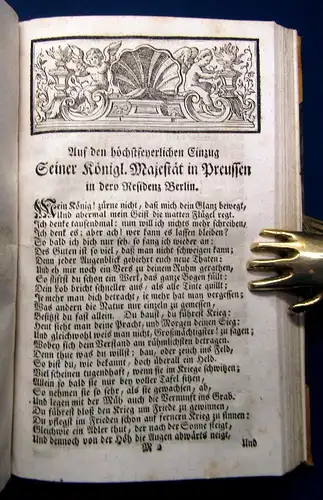 Auf den höchstfeyerlichen Einzug
Seiner Königl. Majestät in Preussen
in dero Residenz Berlin.
Mein König! zürne nicht, daß mich dein Glanz bewegt,
Und abermal mein Geist die matten Flügel regt.
Ich denke tausendmal: nun will ich nichts mehr schreiben,
Ich denk es: aber ach! wer kann es lassen bleiben?
So bald ich dich nur seh, so fang ich wieder an:
Des Guten ist so viel, daß man nicht schweigen kann;
Denn jeder Augenblick gebiehrt euch neue Thaten:
Und eh mir noch ein Vers zu deinem Ruhm gerathen,
So stößt du schon ein Werk, das ganze Bogen füllt;
Dein Lob bricht schneller aus, als alle Tinte quillt:
Je mehr man dich betracht, je mehr hat man vergessen;
Was andern die Natur nur einzeln zu gemessen,
Besitzt du fast allein. Du baust, du führest Krieg:
Heut sieht man deine Pracht, und Morgen deinen Sieg:
Und gleichwohl weis man nicht, Großmächtigster! zu sagen;
Wobey sich dein Verstand am rühmlichsten betragen.
Denn thue was du willst: bau, oder zeuch ins Feld,
So bist du, wie bekannt, doch überall ein Held.
Viel scheinen tugendhaft, wenn sie im Kriege schwitzen;
Allein so bald sie nur bey voller Tafel sitzen,
So nehmen sie so sehr, als sie gewachsen, ab,
Und legen mit der Müh auch die Vernunft ins Grab.
Du führest bloß den Krieg um Friede zu gewinnen,
Du pflegst im Frieden schon auf fernern Krieg zu sinnen:
Gleichwie ein Adler thut, der nach der Sonne steigt,
Und dennoch von der Höh die Augen abwärts neigt,
M 2 Und